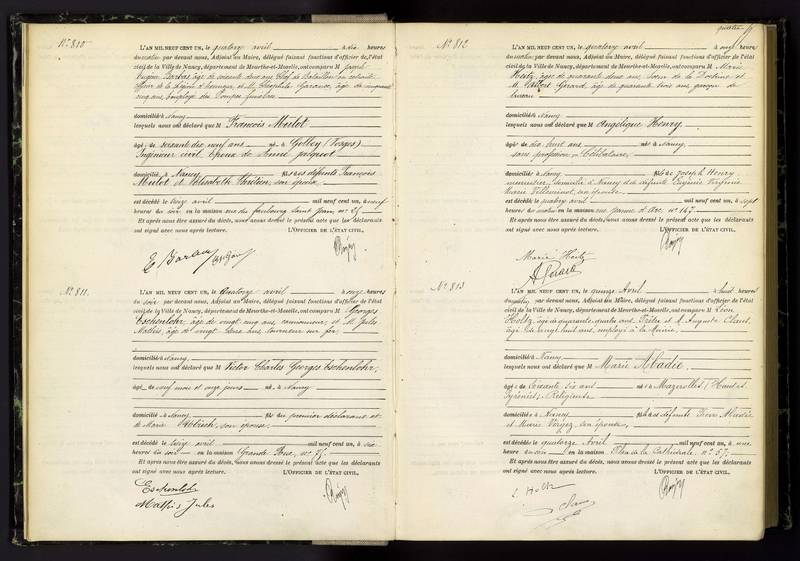 N° 810
L'AN MIL NEUF CENT UN, le quatorze avril à dix heures
du matin par devant nous, Adjoint au Maire, délégué faisant fonctions d'officier de l'état
civil de la Ville de Nancy, département de Meurthe-et-Moselle, ont comparu M Joseph
Eugène Barbas âgé de soixante deux ans, Chef de Bataillon en retraite
officier de la légion d'honneur, et M. Théophile Garance, âgé de cinquante
cinq ans, employé des Pompes funèbres
domiciliés à Nancy
lesquels nous ont déclaré que M François Mulot
âgé de soixante dix neuf ans né à Golbey (Vosges)
Ingénieur civil, époux de Anne
domicilié à Nancy fils des défunts François
Mulot et Elisabeth son épouse
est décédé le treize avril mil neuf cent un, à neuf
heures du soir en la maison rue du faubourg Saint Jean, n°
Et après nous être assuré du décès, nous avons dressé le présent acte que les déclarants
ont signé avec nous après lecture. L'OFFICIER DE L'ÉTAT CIVIL,
N° 811.
L'AN MIL NEUF CENT UN, le quatorze avril à onze heures
du par devant nous, Adjoint au Maire, délégué faisant fonctions d'officier de l'état
civil de la Ville de Nancy, département de Meurthe-et-Moselle, ont comparu M Georges
Eschenlohr, âgé de vingt cinq ans, camionneur, et M. Jules
Mathis, âgé de vingt deux ans, tourneur sur fer,
domiciliés à Nancy
lesquels nous ont déclaré que M Victor Charles Georges Eschenlohr,
âgé de neuf mois et onze jours né à Nancy
domicilié à Nancy fils du premier déclarant et
de Marie son épouse
est décédé le treize avril mil neuf cent un, à six
heures du soir en la maison Grande Rue, n°
Et après nous être assuré du décès, nous avons dressé le présent acte que les déclarants
ont signé avec nous après lecture. L'OFFICIER DE L'ÉTAT CIVIL,
Eschenlohr
Mathis Jules
N° 812
L'AN MIL NEUF CENT UN, le quatorze avril à onze heures
du matin par devant nous, Adjoint au Maire, délégué faisant fonctions d'officier de l'état
civil de la Ville de Nancy, département de Meurthe-et-Moselle, ont comparu M Marie
Heitz, âgée de quarante deux ans, Soeur de la Doctrine et
M. Gérard, âgé de quarante trois ans, garçon de
bureau
domiciliés à Nancy
lesquels nous ont déclaré que M Angélique Henry
âgée de dix huit ans née à Nancy
sans profession, Célibataire,
domiciliée à Nancy fille de Joseph Henry
menuisier, domicilié à Nancy et de défunte Eugénie Virginie
Marie son épouse
est décédée le quatorze avril mil neuf cent un, à sept
heures du matin en la maison rue Jeanne d'Arc, n° 147.
Et après nous être assuré du décès, nous avons dressé le présent acte que les déclarants
ont signé avec nous après lecture. L'OFFICIER DE L'ÉTAT CIVIL,
Marie Heitz
A Gérard
N° 813
L'AN MIL NEUF CENT UN, le quinze Avril à huit heures
du matin par devant nous, Adjoint au Maire, délégué faisant fonctions d'officier de l'état
civil de la Ville de Nancy, département de Meurthe-et-Moselle, ont comparu M Léon
Holtz, âgé de quarante quatre ans, Prêtre et M. Auguste
âgé de vingt huit ans, employé à la Mairie,
domiciliés à Nancy
lesquels nous ont déclaré que M Marie Abadie,
âgée de soixante six ans née à Mazerolles (Hautes
Pyrénées), Religieuse
domiciliée à Nancy fille des défunts Pierre Abadie
et Marie Verges, son épouse,
est décédée le quatorze Avril mil neuf cent un, à une
heure du soir en la maison Place de la Cathédrale, n° 57.
Et après nous être assuré du décès, nous avons dressé le présent acte que les déclarants
ont signé avec nous après lecture. L'OFFICIER DE L'ÉTAT CIVIL,
L Holtz